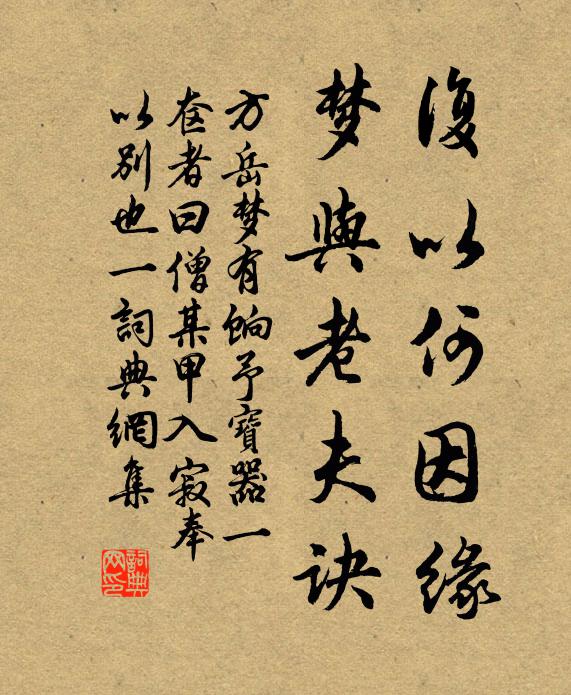 復以何因緣
夢與老夫訣
方岳夢有餉予寶器一
奩者曰僧某甲入寂奉
以別也一詞典網集
詞典網印